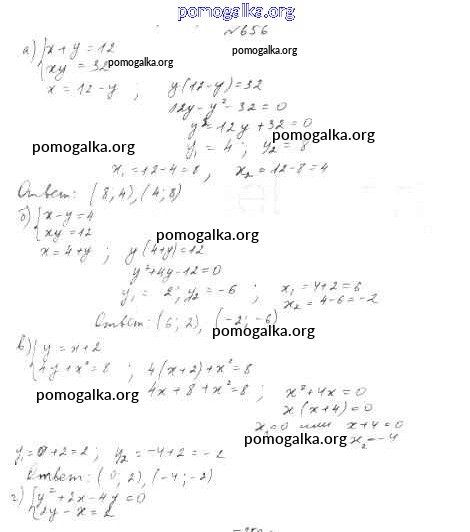 pomogalka.org
№656
pomogalka.org
а) {x + y = 12
{xy = 32
pomogalka.org
x = 12 - y ; y(12 - y) = 32
12y - y² - 32 = 0
y² - 12y + 32 = 0
pomogalka.org
y₁ = 4 ; y₂ = 8
pomogalka.org
x₁ = 12 - 4 = 8 , x₂ = 12 - 8 = 4
Ответ: (8; 4), (4; 8)
б) {x - y = 4
{xy = 12
pomogalka.org
x = 4 + y ; y(4 + y) = 12
y² + 4y - 12 = 0
y₁ = 2; y₂ = -6 ; x₁ = 4 + 2 = 6
x₂ = 4 - 6 = -2
Ответ: (6; 2), (-2; -6)
pomogalka.org
в) {y = x + 2
{4y + x² = 8 ; 4(x + 2) + x² = 8
4x + 8 + x² = 8 ; x² + 4x = 0
pomogalka.org
x(x + 4) = 0
x₁ = 0 или x + 4 = 0
pomogalka.org
x₂ = -4
y₁ = 0 + 2 = 2 ; y₂ = -4 + 2 = -2
Ответ: (0; 2), (-4; -2)
г) {y² + 2x - 4y = 0
{2y - x = 2